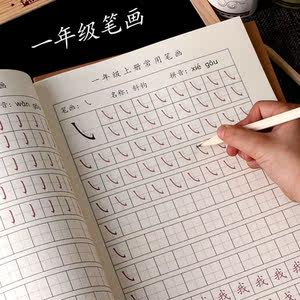 一年级笔画
一年级上册常用笔画
画
音：wān gōu
笔画：㇂ 名称：斜钩 拼音：xié gōu
我 我 我 我 我